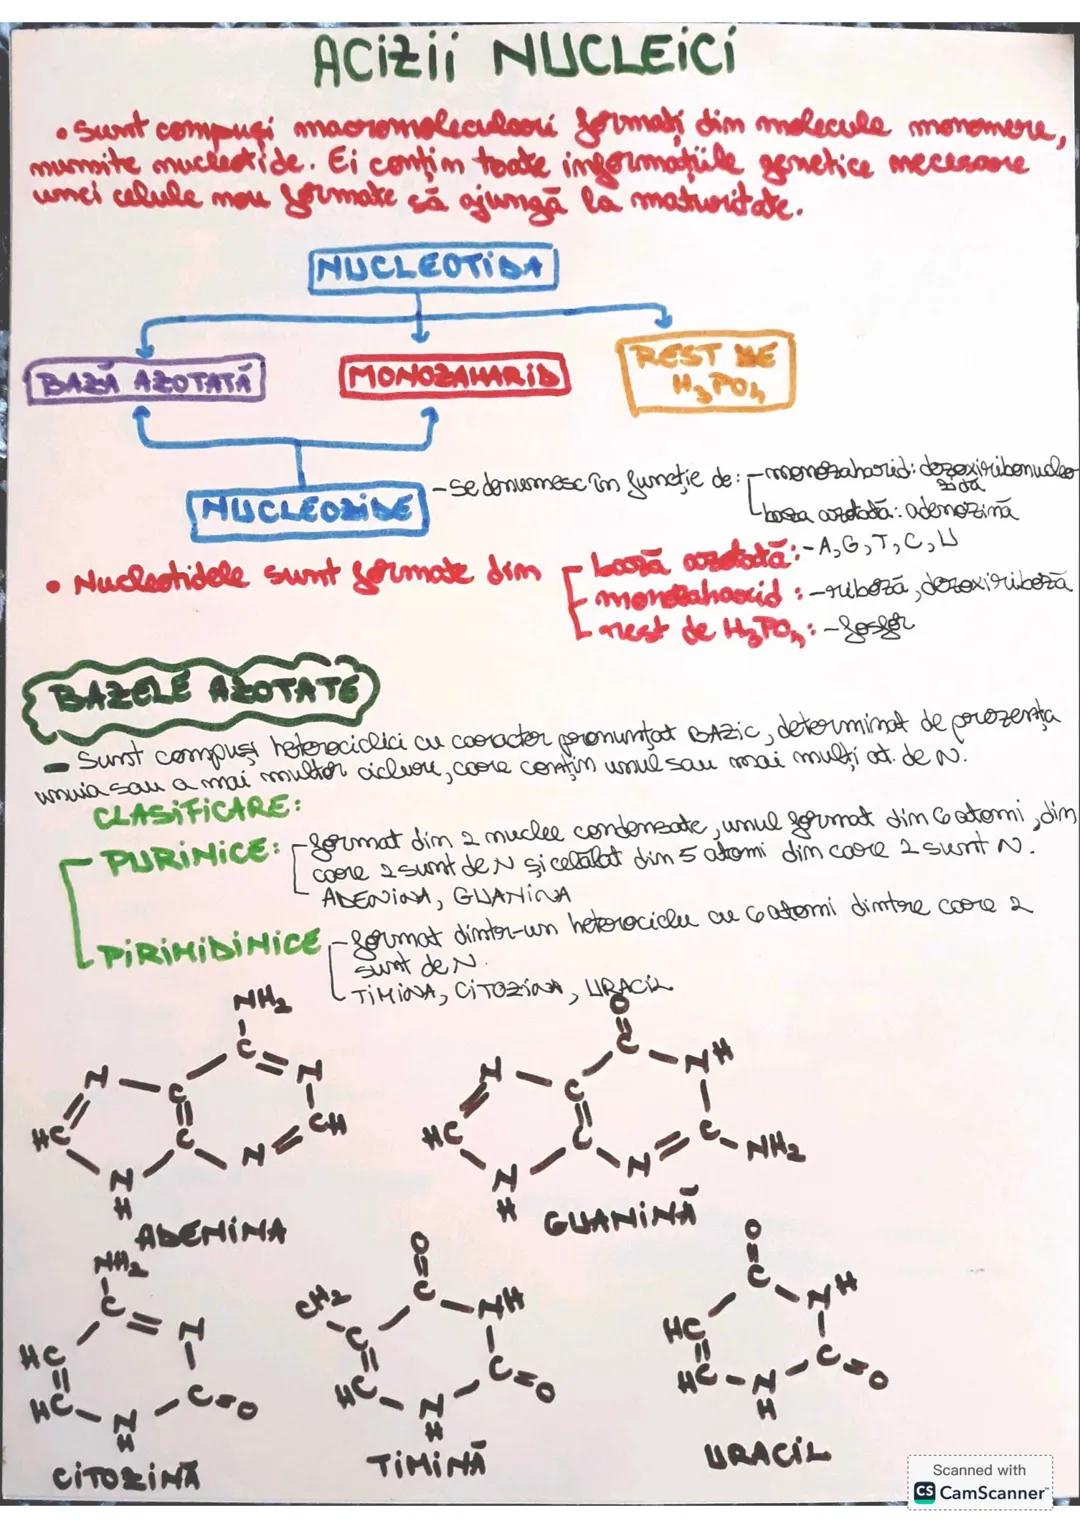 ACIZII NUCLEICI
• Sunt compuși macromoleculari formați din molecule monomere,
numite nucleotide. Ei conțin toate informațiile genetice necesare
unei celule nou formate să ajungă la maturitate.
NUCLEOTIDA
BAZĂ AZOTATĂ
MONOZAHARID
REST DE
H3PO4
NUCLEOZIDE
- se denumesc în funcție de:
- monozaharid: dezoxiribonucleo
zidă
baza azotată: adenozină
• Nucleotidele sunt formate din
bază azotată: - A, G, T, C, U
monozaharid: - riboză, dezoxiriboză
rest de H3PO4: - fosfor
BAZELE AZOTATE
- Sunt compuși heterociclici cu caracter pronunțat BAZIC, determinat de prezența
unuia sau a mai multor cicluri, care conțin unul sau mai mulți at. de N.
CLASIFICARE:
PURINICE:
- format din 2 nuclee condensate, unul format din 6 atomi, din
care 2 sunt de N și celălalt din 5 atomi din care 2 sunt N.
ADENINA, GUANINA
PIRIMIDINICE
- format dintr-un heterociclu cu 6 atomi dintre care 2
sunt de N.
TIMINA, CITOZINA, URACIL
NH2
C
N
N
C
HC
C
CH
N
N
H
ADENINA
O
C
N
NH
C
HC
C
C
NH2
N
N
H
GUANINĂ
NH2
C
N
HC
HC
C=O
N
H
CITOZINĂ
O
C
CH2
NH
C
HC
C=O
N
H
TIMINĂ
O
C
NH
HC
HC
C=O
N
H
URACIL
Scanned with
CS CamScanner